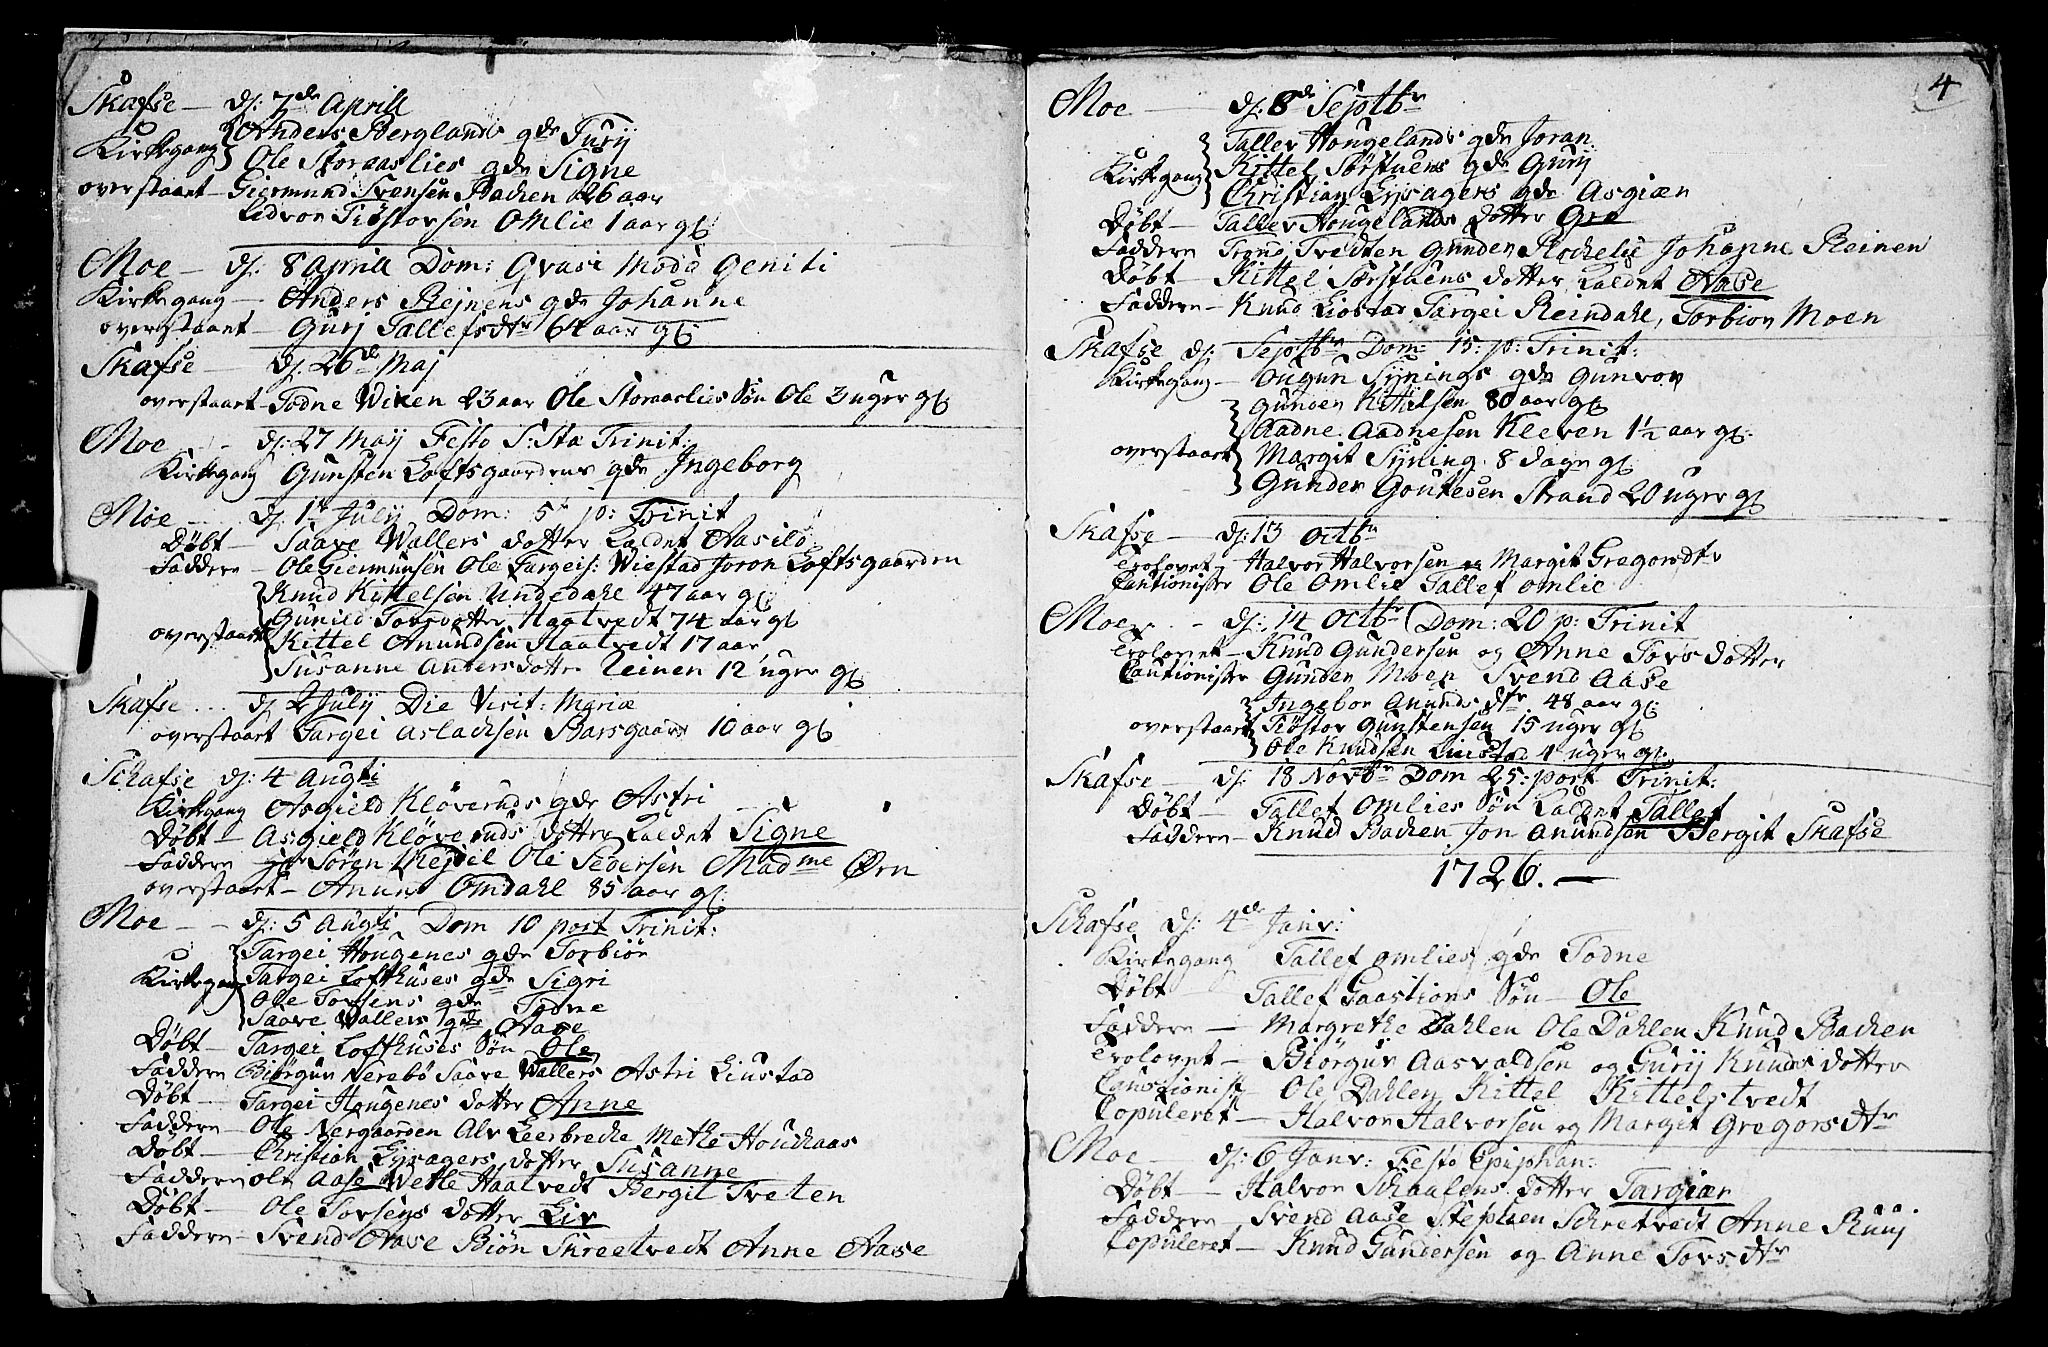 Skafse — d: 7de Aprill
Kirkegang { Anders Berglands qde Turij
Ole Storaaslies qde Signe
overstaaet — Giermund Svensen Backen 26 aar
Lidvor Tiøstorsen Omlie 1 aar gl:
Moe — d: 8 Aprill Dom: Qvasi Modo Geniti
Kirkegang — Anders Reinens qde Johanne
overstaaet — Gurj Tallefsdtr 64 aar gl:
Skafse — d: 26de Maj
overstaaet — Todne Wiken 23 aar Ole Storaaslies Søn Ole 3 uger gl:
Moe — d: 27 Maij Festo S:Stæ Trinit:
Kirkegang Gunsten Loftsgaardens qde Ingeborg
Moe — d: 1te Julij Dom: 5te p: Trinit
Døbt — Saave Wallers dotter kaldet Aasilo
Faddere — Ole Giermunsen Ole Targeis: Wiestad Joron Loftsgaarden
overstaaet { Knud Kittelsen Undedahl 47 aar gl:
Gunild Torsdotter Haatvedt 74 aar gl
Kittel Anundsen Haatvedt 17 aar
Susanne Andersdotter Reinen 12 uger gl:
Skafse ... d: 2 Julij Die Visit: Mariæ
overstaaet Targei Aslachsen Barsgaard 10 aar gl:
Schafse d: 4 Augti
Kirkegang Asgield Kløveruds qde Astri
Døbt — Asgield Kløveruds dotter kaldet Signe
Faddere Søren Kejdel Ole Pedersen Madme Ørn
overstaaet — Anun Omdahl 85 aar gl:
Moe — d: 5 Augti Dom 10 post Trinit:
Kirkegang { Targei Hougenes qde Torbiør
Targei Lofthuses qde Sigri
Ole Torsens qde Todne
Saave Wallers qde Aase
Døbt — Targei Lofthuses Søn Ole
Faddere Biørguv Nerebø Saave Wallers Astri Liustad
Døbt — Targei Hougenes dotter Anne
Faddere — Ole Nergaarden Alv Leerbrecke Methe Houchaas
Døbt — Christian Eysagers dotter Susanne
Faddere Ole Aase Wetle Haatvedt Bergit Tveten
Døbt — Ole Torsens dotter Liv
Faddere — Svend Aase Biøn Skreetvedt Anne Aase
4
Moe — d: 8de Septbr
Kirkegang { Tallev Hougelands qde Joran
Kittel Sørstuens qde Gurij
Christian Eysagers qde Asgiær
Døbt — Tallev Hougelands dotter Gro
Faddere Trond Tvedten Gunder Rockelie Johanne Reinen
Døbt — Kittel Sørstuens dotter kaldet Aase
Faddere — Knud Liostad Targei Reindahl, Torbion Moen
Skafse d: Septbr Dom: 15: p: Trinit:
Kirkegang — Ougun Synings qde Gunvor
overstaaet { Gunder Kittilsen 80 aar gl:
Aadne Aadnesen Kleven 1½ aar gl:
Margit Syning 8 dage gl
Gunder Goutesen Strand 20 uger gl
Skafse — d: 13 Octbr
Trolovet, Halvor Halvorsen og Margit Gregorsdtr
Cautionister Ole Omlie Tallef Omlie
Moe — d: 14 Octbr Dom: 20 p: Trinit
Trolovet — Knud Gundersen og Anne Torsdotter
Cautionister Gunder Moen Svend Aase
overstaaet { Ingebor Anunds dtr 48 aar gl:
Tiøstor Gunstensen 15 uger gl
Ole Knudsen Liustad 4 uger gl:
Skafse — d: 18 Novbr Dom 25: post Trinit:
Døbt — Tallef Omlies Søn kaldet Tallef
Faddere — Knud Backen Jon Anundsen Bergit Skafse
1726. —
Schafse d: 4de Janv:
Kirkegang Tallef Omlies qde Todne
Døbt Tallef Gaastions Søn — Ole
Faddere — Margrethe Dahlen Ole Dahlen Knud Backen
Trolovet — Biørguv Aasvaldsen og Gurij Knuds dotter
Caustionist Ole Dahlen Kittel Kittelstvedt
Copuleret — Halvor Halvorsen og Margit Gregors dtr
Moe — d: 6 Janv: Festo Epiphan:
Døbt — Halvor Schaafens dotter Targiær
Faddere — Svend Aase Stephen Schretvedt Anne Ruuj
Copuleret — Knud Gundersen og Anne Tors dtr